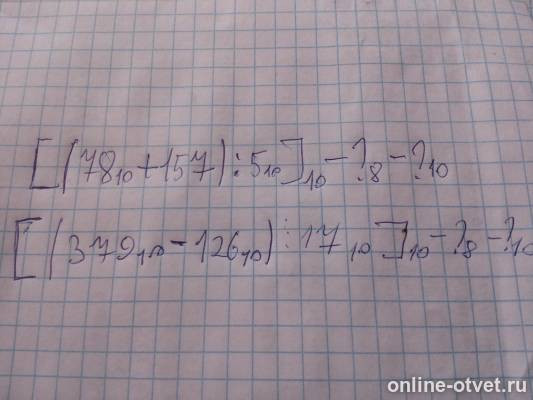 [(78₁₀+157):5₁₀]₁₀-?₈-?₁₀
[(379₁₀-126₁₀):17₁₀]₁₀-?₈-?₁₀
online-otvet.ru